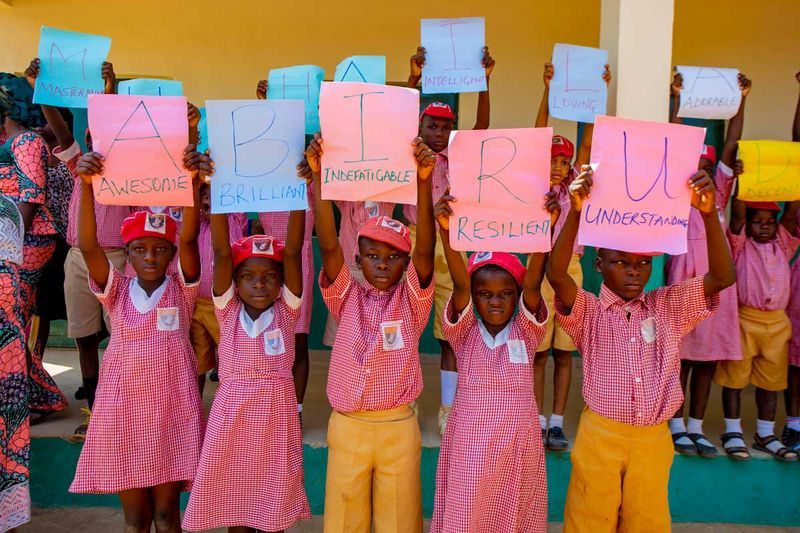 M
MASTERMIND
H
A
A
I
INTELLIGENT
L
LOVING
A
ADORABLE
D
A
AWESOME
B
BRILLIANT
I
INDEFATIGABLE
R
RESILIENT
U
UNDERSTANDING